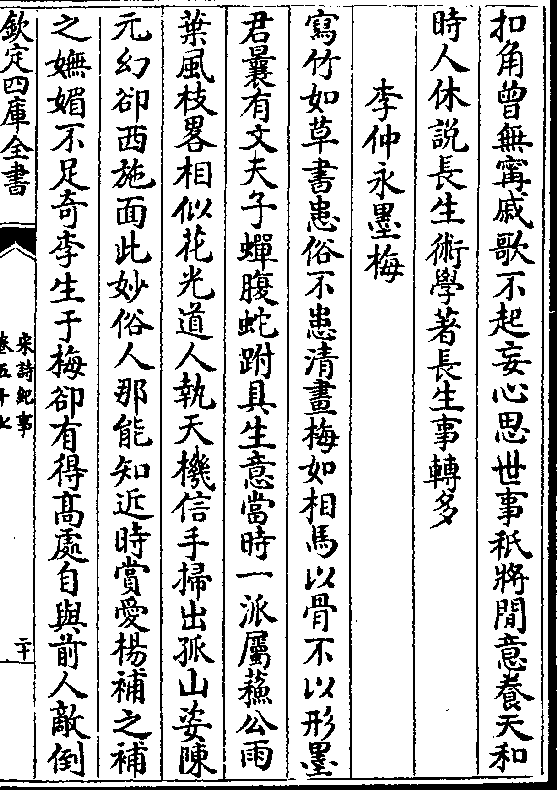 扣角曾無甯戚歌不起妄心思世事秖將閒意養天和
時人休説長生術學著長生事轉多
李仲永墨梅
寫竹如草書患俗不患清畫梅如相馬以骨不以形墨
君曩有文夫子蟬腹蛇跗具生意當時一派屬蘓公雨
葉風枝畧相似花光道人執天機信手掃出孤山姿陳
元幻卻西施面此妙俗人那能知近時賞愛楊補之補
之嫵媚不足奇李生于梅卻有得髙處自與前人敵倒
欽定四庫全書
宋詩紀事
卷五十七
二十